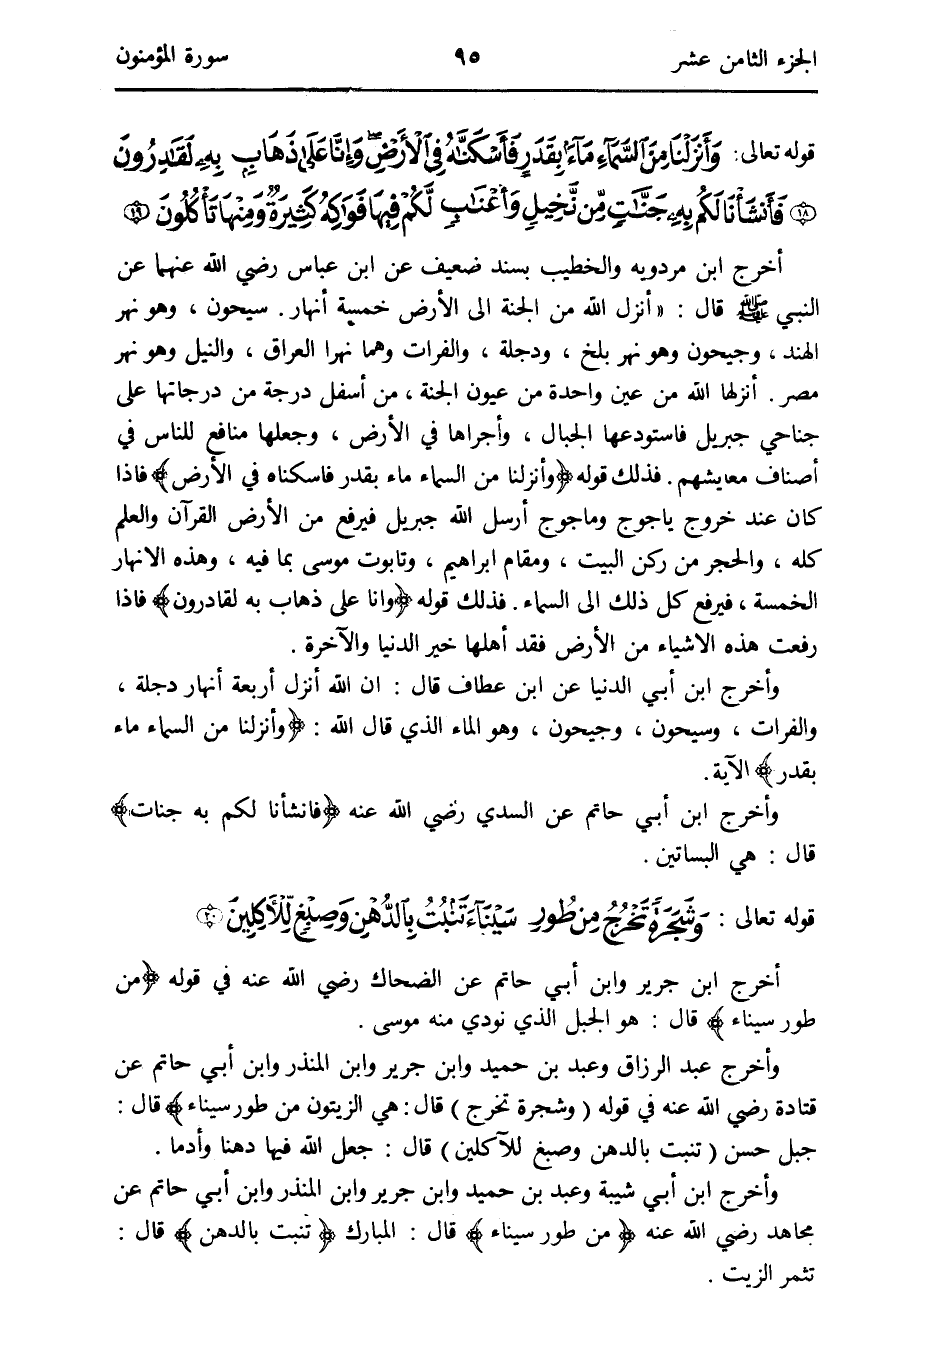 الجزء الثامن عشر ٩٥ سورة المؤمنون
قوله تعالى: وَأَنزَلْنَا مِنَ السَّمَاءِ مَاءً بِقَدَرٍ فَأَسْكَنَّاهُ فِي الْأَرْضِ وَإِنَّا عَلَىٰ ذَهَابٍ بِهِ لَقَادِرُونَ
﴿١٨﴾ فَأَنشَأْنَا لَكُم بِهِ جَنَّاتٍ مِّن نَّخِيلٍ وَأَعْنَابٍ لَّكُمْ فِيهَا فَوَاكِهُ كَثِيرَةٌ وَمِنْهَا تَأْكُلُونَ ﴿١٩﴾
أخرج ابن مردويه والخطيب بسند ضعيف عن ابن عباس رضي الله عنهما عن
النبي ﷺ قال : « أنزل الله من الجنة الى الأرض خمسة أنهار . سيحون ، وهو نهر
الهند ، وجيحون وهو نهر بلخ ، ودجلة ، والفرات وهما نهرا العراق ، والنيل وهو نهر
مصر . أنزلها الله من عين واحدة من عيون الجنة ، من أسفل درجة من درجاتها على
جناحي جبريل فاستودعها الجبال ، وأجراها في الأرض ، وجعلها منافع للناس في
أصناف معايشهم . فذلك قوله ﴿وأنزلنا من السماء ماء بقدر فاسكناه في الأرض﴾ فاذا
كان عند خروج ياجوج وماجوج أرسل الله جبريل فيرفع من الأرض القرآن والعلم
كله ، والحجر من ركن البيت ، ومقام ابراهيم ، وتابوت موسى بما فيه ، وهذه الانهار
الخمسة ، فيرفع كل ذلك الى السماء . فذلك قوله ﴿وانا على ذهاب به لقادرون﴾ فاذا
رفعت هذه الاشياء من الأرض فقد أهلها خير الدنيا والآخرة .
وأخرج ابن أبي الدنيا عن ابن عطاف قال : ان الله أنزل أربعة أنهار دجلة ،
والفرات ، وسيحون ، وجيحون ، وهو الماء الذي قال الله : ﴿وأنزلنا من السماء ماء
بقدر﴾ الآية .
وأخرج ابن أبي حاتم عن السدي رضي الله عنه ﴿فانشأنا لكم به جنات﴾
قال : هي البساتين .
قوله تعالى : وَشَجَرَةً تَخْرُجُ مِن طُورِ سَيْنَاءَ تَنبُتُ بِالدُّهْنِ وَصِبْغٍ لِّلْآكِلِينَ ﴿٢٠﴾
أخرج ابن جرير وابن أبي حاتم عن الضحاك رضي الله عنه في قوله ﴿من
طور سيناء ﴾ قال : هو الجبل الذي نودي منه موسى .
وأخرج عبد الرزاق وعبد بن حميد وابن جرير وابن المنذر وابن أبي حاتم عن
قتادة رضي الله عنه في قوله ( وشجرة تخرج ) قال : هي الزيتون من طور سيناء ﴾ قال :
جبل حسن ( تنبت بالدهن وصبغ للآكلين ) قال : جعل الله فيها دهنا وأدما .
وأخرج ابن أبي شيبة وعبد بن حميد وابن جرير وابن المنذر وابن أبي حاتم عن
مجاهد رضي الله عنه ﴿ من طور سيناء ﴾ قال : المبارك ﴿ تنبت بالدهن ﴾ قال :
تثمر الزيت .